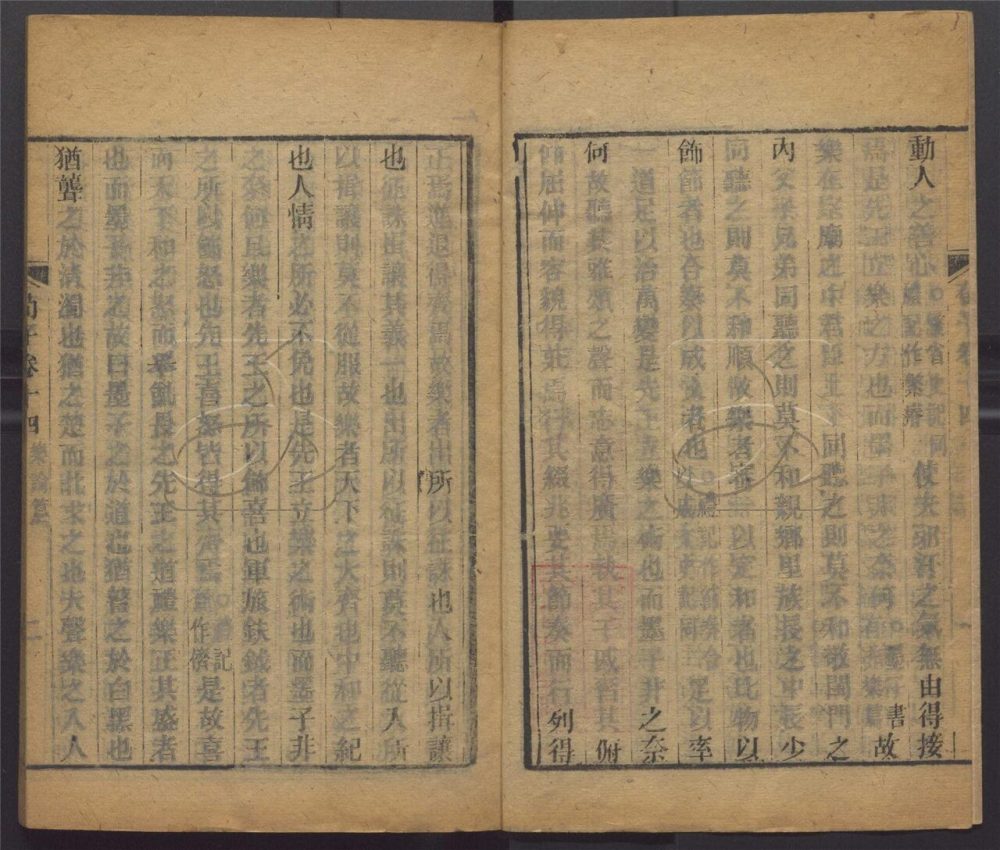 動人之善心○繁省史記同禮記作繁瘠使夫邪汙之氣無由得接
焉是先王立樂之方也而墨子非之奈何○墨書故
樂在宗廟之中君臣上下同聽之則莫不和敬閨門之
內父子兄弟同聽之則莫不和親鄉里族長之中長少
同聽之則莫不和順故樂者審一以定和者也比物以
飾節者也合奏以成文者也足以率
一道足以治萬變是先王立樂之術也而墨子非之奈
何故聽其雅頌之聲而志意得廣焉執其干戚習其俯
仰屈伸而容貌得莊焉行其綴兆要其節奏而行列得
正焉進退得齊焉故樂者出所以征誅也入所以揖讓
也征誅揖讓其義一也出所以征誅則莫不聽從入所
以揖讓則莫不從服故樂者天下之大齊也中和之紀
也人情之所必不免也是先王立樂之術也而墨子非
之奈何且樂者先王之所以飾喜也軍旅鈇鉞者先王
之所以飾怒也先王喜怒皆得其齊焉○禮記齊作儕是故喜
而天下和之怒而暴亂畏之先王之道禮樂正其盛者
也而墨子非之故曰墨子之於道也猶瞽之於白黑也
猶聾之於清濁也猶之楚而北求之也夫聲樂之入人
荀子卷十四 樂論篇 二